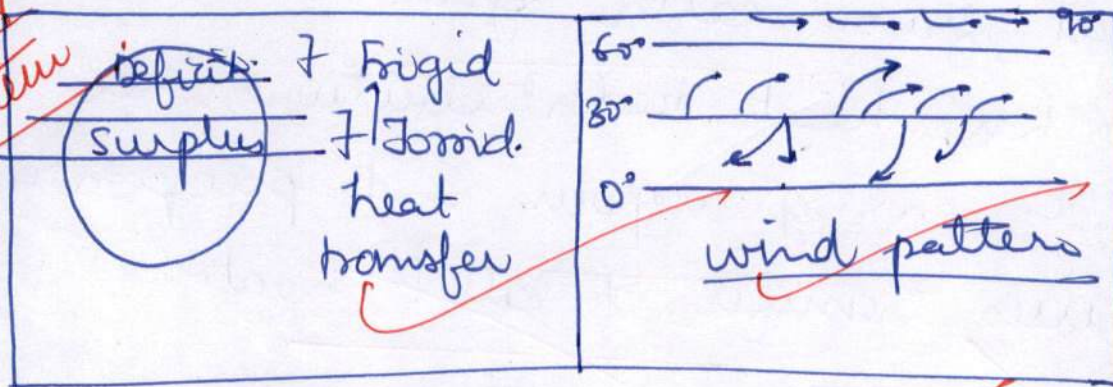 Deficit Frigid
surplus Torrid.
heat
transfer
90°
60°
30°
0°
wind pattern